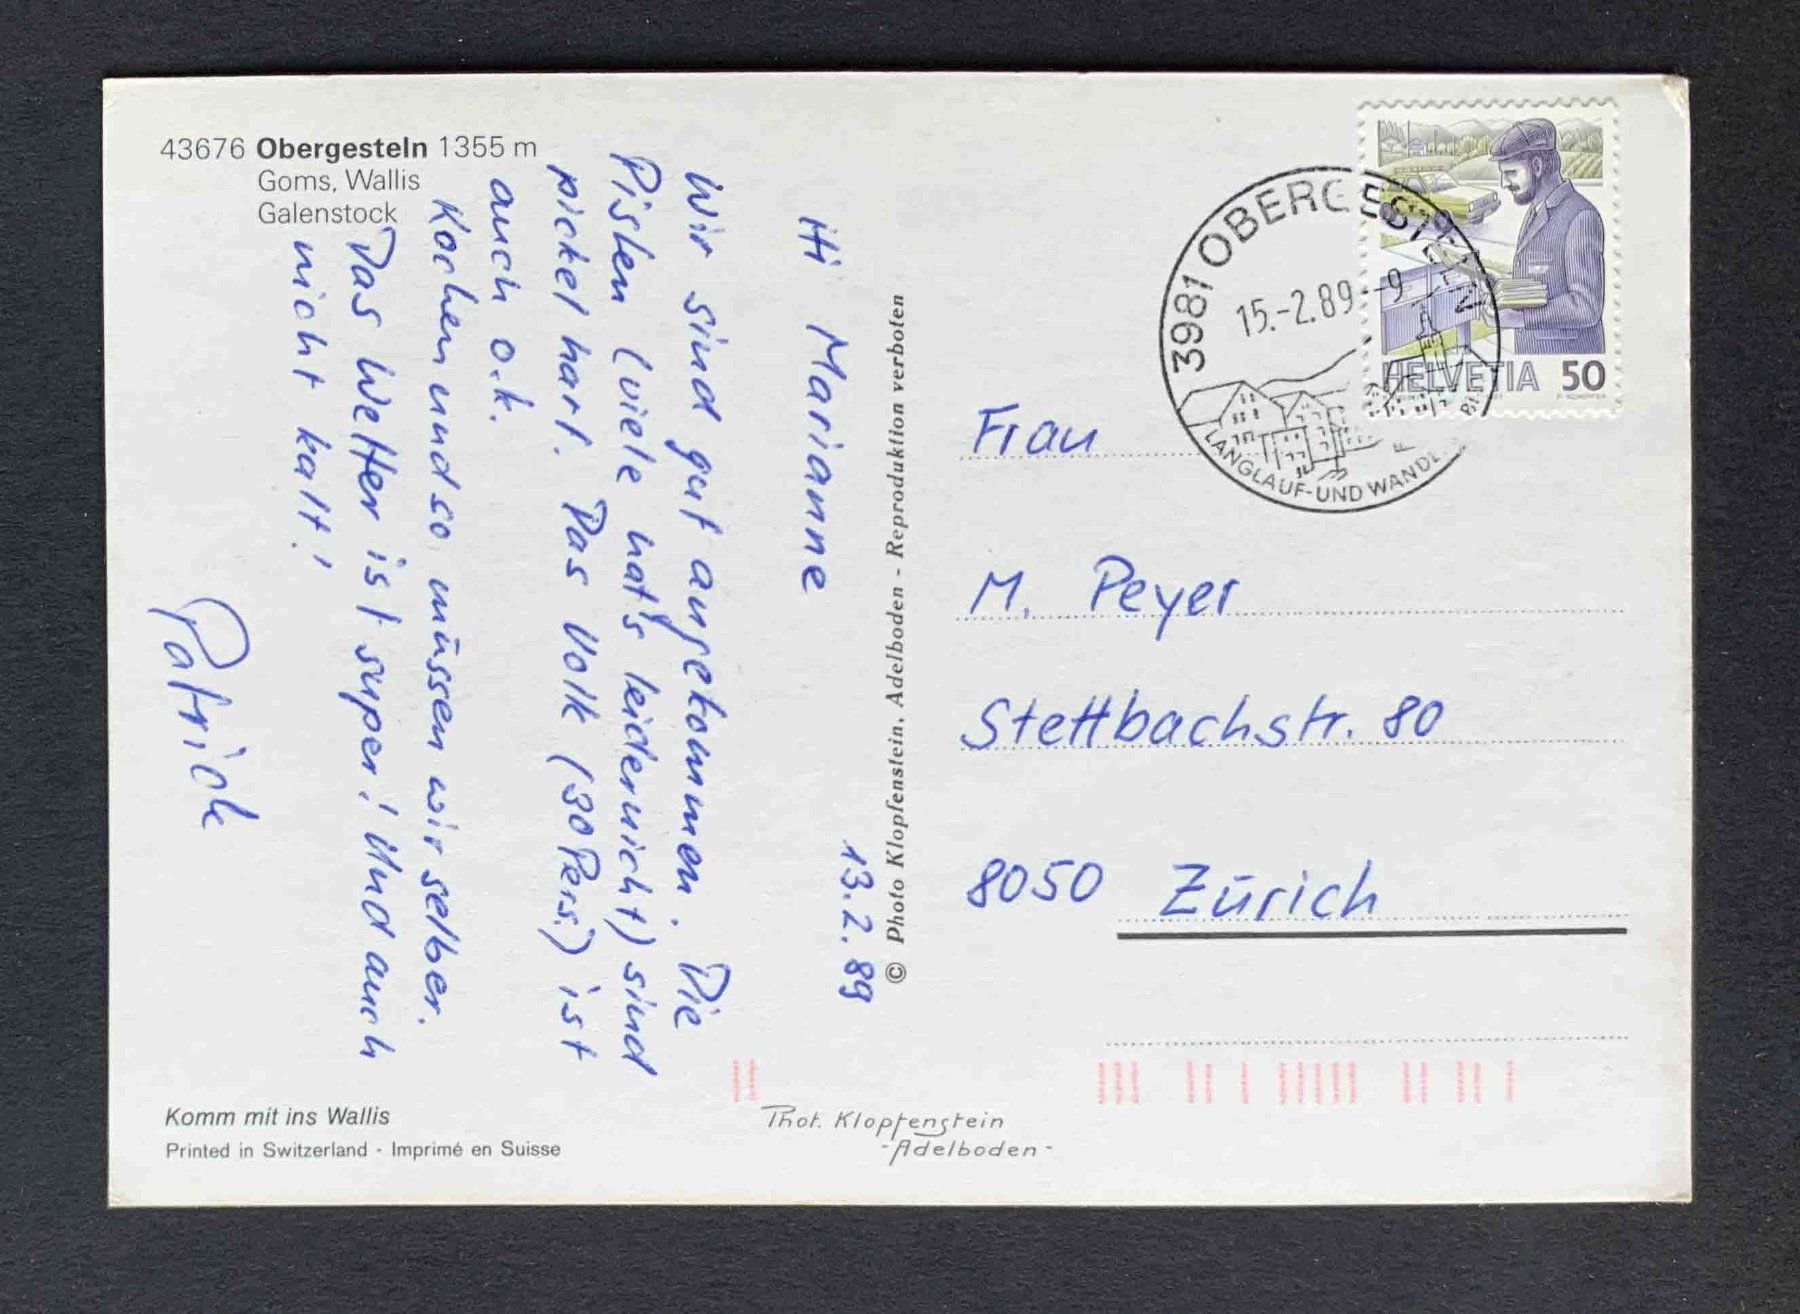 43676 Obergesteln 1355 m
Goms, Wallis
Galenstock
13.2.89
Hi Marianne
Wir sind gut angekommen. Die
Pisten (viele hat's leider nicht) sind
pickel hart. Das Volk (30 Pers.) ist
auch o.k.
Kochen und so müssen wir selber.
Das Wetter ist super! Und auch
nicht kalt!
Patrick
Komm mit ins Wallis
Printed in Switzerland - Imprimé en Suisse
© Photo Klopfenstein, Adelboden - Reproduktion verboten
Phot. Klopfenstein
-Adelboden-
3981 OBERGESTELN
15.-2.89.-9
LANGLAUF-UND WANDER
HELVETIA 50
Frau
M. Peyer
Stettbachstr. 80
8050 Zürich